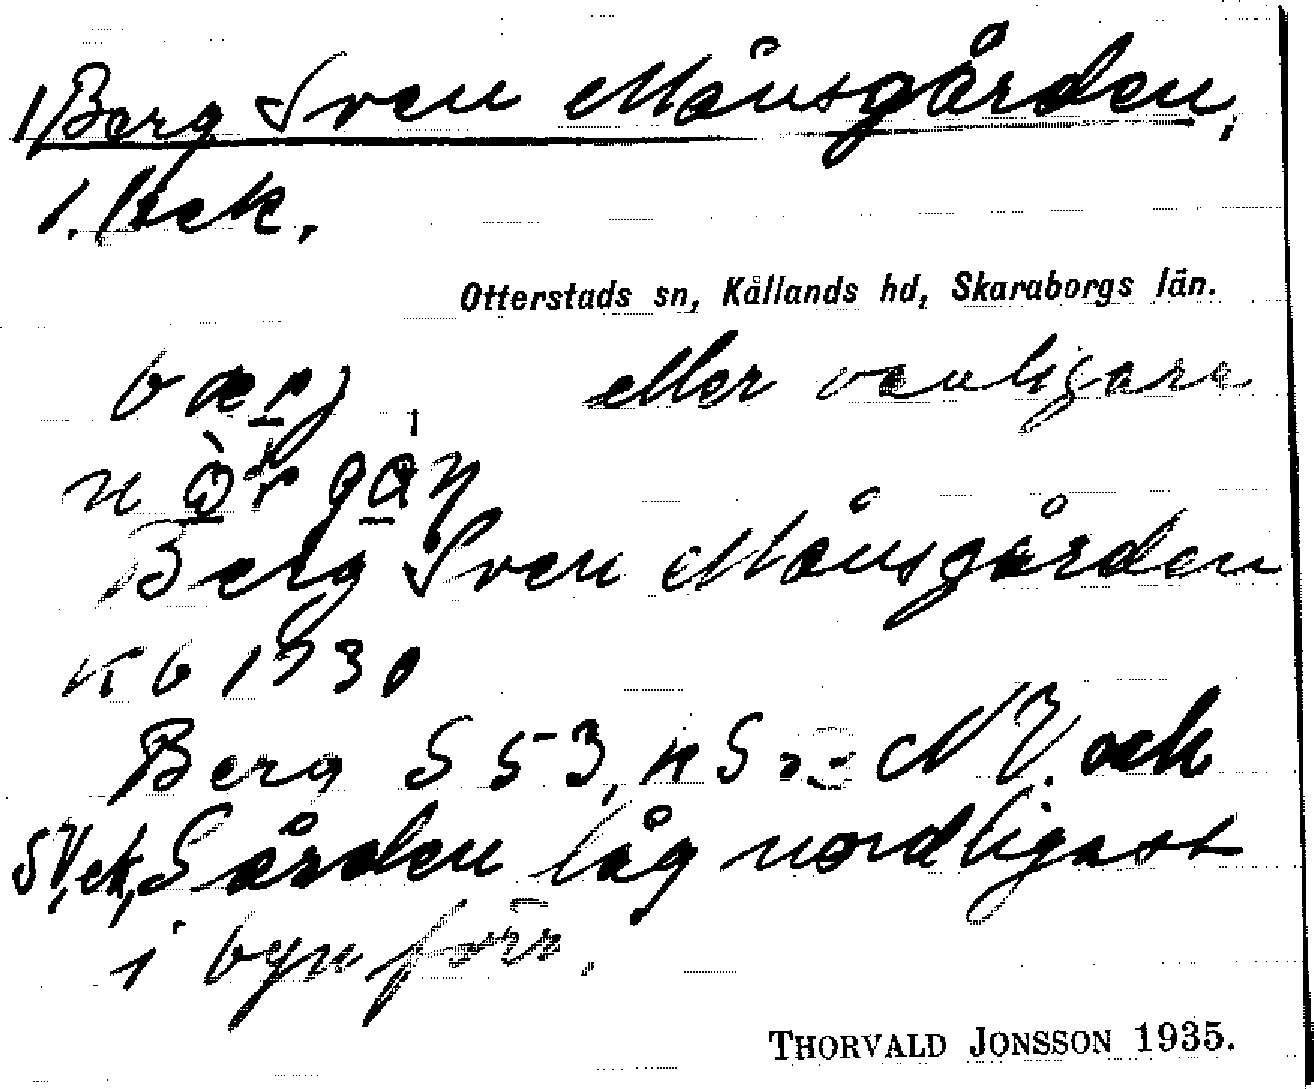 1/Berg Sven Månsgården,
1. Bek.
Otterstads sn, Kållands hd, Skaraborgs län.
bærj eller vanligare
Berg Sven Månsgården
Kb 1930
Berg S 53, NV. och
SV, ek, Gården låg nordligast
i byn förr.
THORVALD JONSSON 1935.